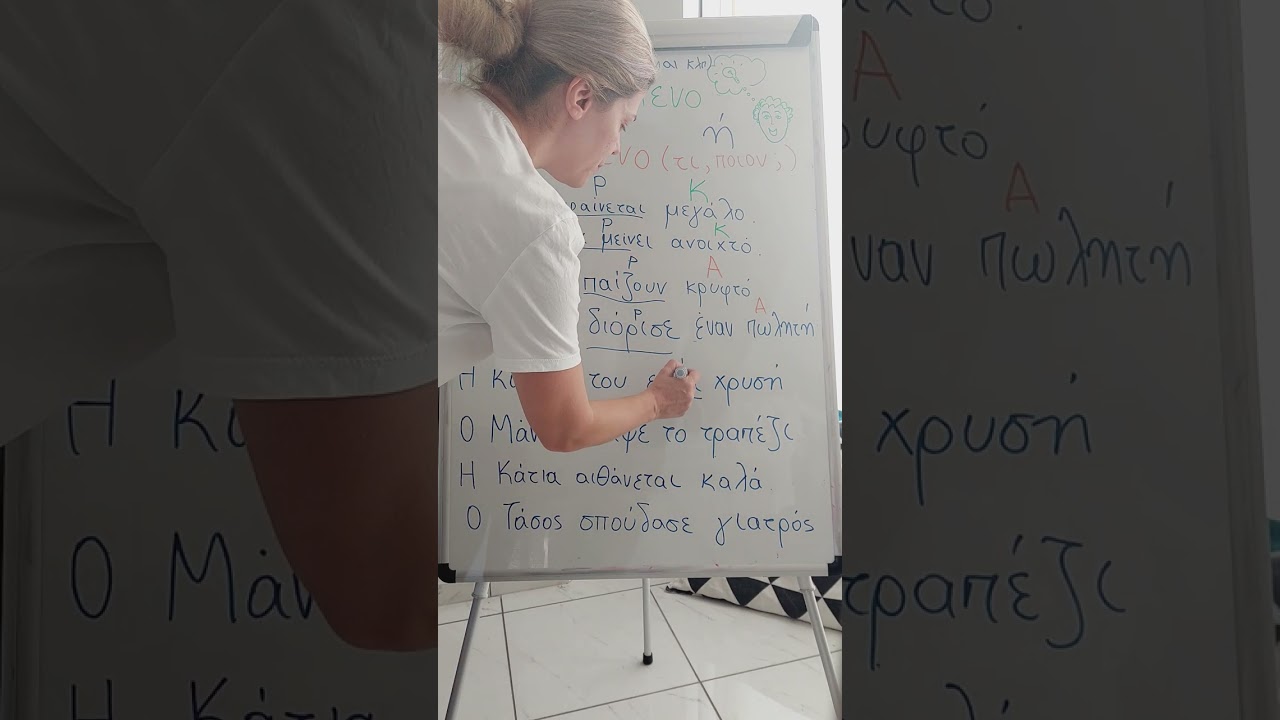 ή
(τι, ποιον;)
Ρ Κ
φαίνεται μεγάλο.
Ρ Κ
μείνει ανοιχτό.
Ρ Α
παίζουν κρυφτό
Ρ Α
διόρισε έναν πωλητή
Η του χρυσή
Ο το τραπέζι
Η Κάτια αιθάνεται καλά
Ο Τάσος σπούδασε γιατρός